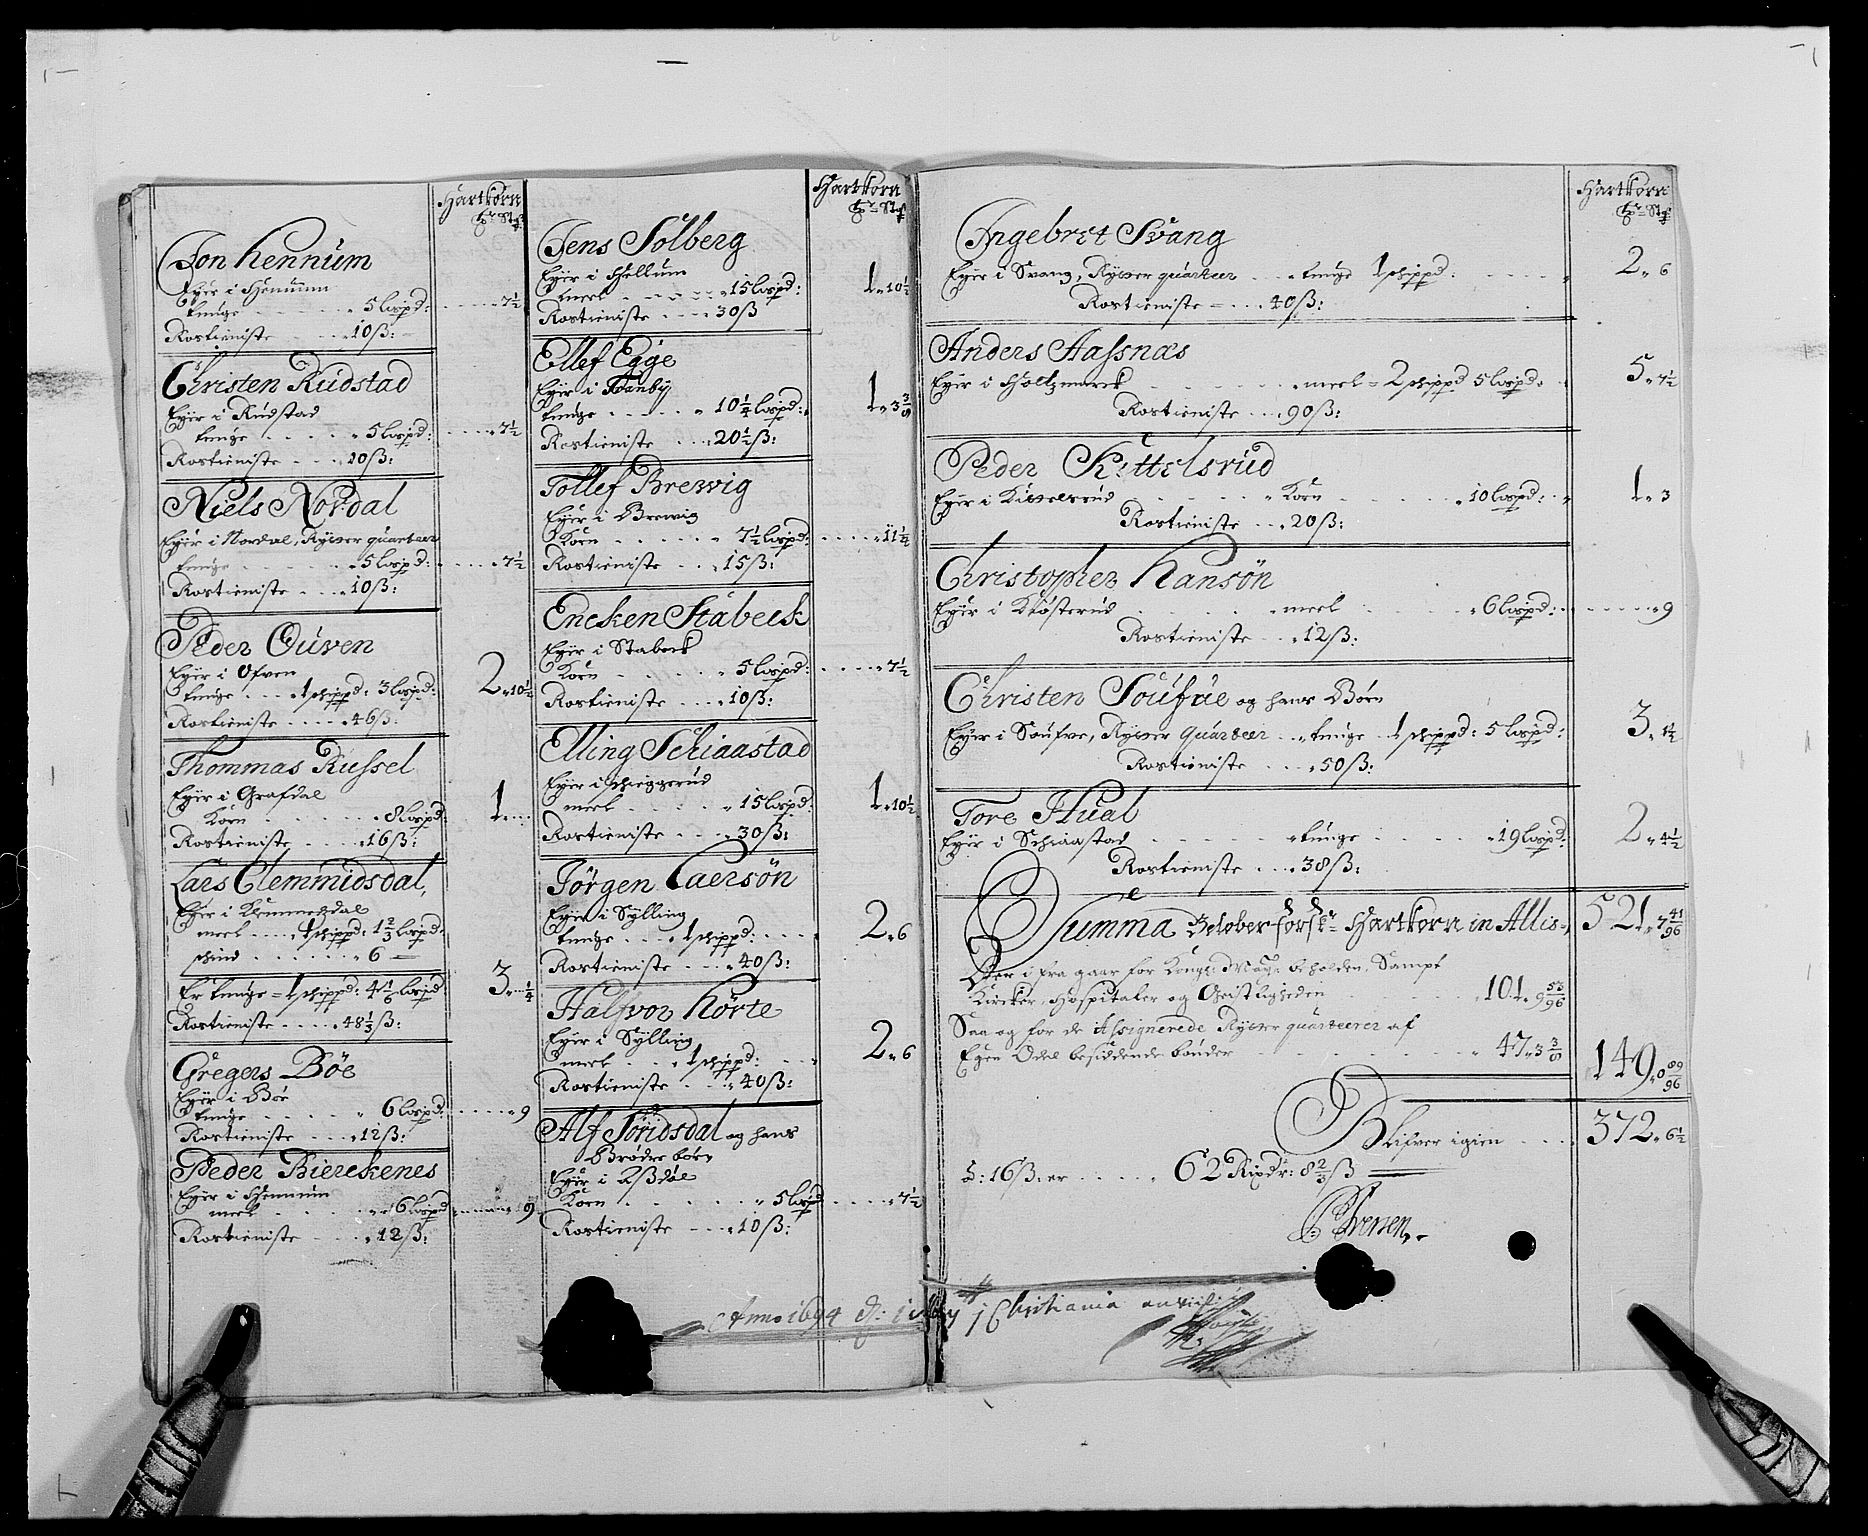 Hartkorn
Jon Hennum
Eyer i Hennum
tunge 5 lispd: 7½
Rostieniste 10ß:
Christen Rudstad
Eyer i Rudstad
tunge 5 lispd: 7½
Rostieniste 10ß:
Niels Nordal
Eyer i Nordal, Rytter quarteer
tunge 5 lispd: 7½
Rostieniste 10ß:
Peder Ouven
Eyer i Ofven
tunge 1 schippd: 3 lispd: 2 „ 10½
Rostieniste 46ß:
Thommas Russel
Eyer i Grafdal
Korn 8 lispd: 1
Rostieniste 16ß:
Lars Clemmidsdal,
Eyer i Klemmetsdal
meel 1 schippd: 1⅔ lispd:
schind 6
Er tunge = 1 schippd: 4⅙ lispd 3 „ ¼
Rostieniste 48⅓ß:
Gregers Böe
Eyer i Böe
tunge 6 lispd: 9
Rostieniste 12ß:
Peder Bierckenes
Eyer i Hennum
meel 6 lispd 9
Rostieniste 12ß:
Hartkorn
Jens Solberg
Eyer i Hellum
meel 15 lispd: 1 „ 10½
Rostieniste 30ß
Ellef Egge
Eyer i Tranby
tunge 10¼ lispd: 1 „ 3⅜
Rostieniste 20½ß:
Tollef Brewig
Eyer i Brewig
Korn 7½ lispd: 11½
Rostieniste 15ß:
Encken Stabeck
Eyer i Stabeck
Korn 5 lispd: 7½
Rostieniste 10ß:
Elling Schiaastad
Eyer i
meel 15 lispd: 1 „ 10½
Rostieniste 30ß:
Jörgen Laersön
Eyer i Sylling
tunge 1 schippd: 2 „ 6
Rostieniste 40ß:
Halfvor Hörte
Eyer i Sylling
meel 1 schippd: 2 „ 6
Rostieniste 40ß:
Alf Toridsdal og hans
Brödre börn
Eyer i
Korn 5 lispd 7½
Rostieniste 10ß:
Hartkorn
Ingebret Svang
Eyer i Svang, Rytter quarteer tunge 1 schippd: 2 „ 6
Rostieniste 40ß:
Anders Aassnæs
Eyer i Holtzmarck meel 2 schippd 5 lispd: 5 „ 7½
Rostieniste 90ß:
Peder Kittelsrud
Eyer i Kittelsrud Korn 10 lispd: 1 „ 3
Rostieniste 20ß:
Christopher Hansön
Eyer i Klösterud meel 6 lispd: 9
Rostieniste 12ß:
Christen Soufue og hans Börn
Eyer i Soufve, Rytter quarteer tunge 1 schippd: 5 lispd: 3 „ 1½
Rostieniste 50ß:
Tore Hual
Eyer i Schiaastad tunge 19 lispd: 2 „ 4½
Rostieniste 38ß:
Summa Hartkorn in Allis 521 „ 7 41/96
Der i fra gaar for Kongl: May: beholden, Sampt
Kircker, Hospitaler og Geistligheden 101 „ 9 53/96
Saa og for de Assignerede Rytter quarteerer af
Egen Odel besiddende bönder 47 „ 3⅜
149 „ 0 89/96
Blifver igien 372 „ 6½
á: 16ß: er 62 Rixdr: 8⅔ß
Anno 1694 d: 1 i Christiania